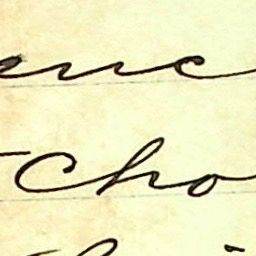 enc
Cho